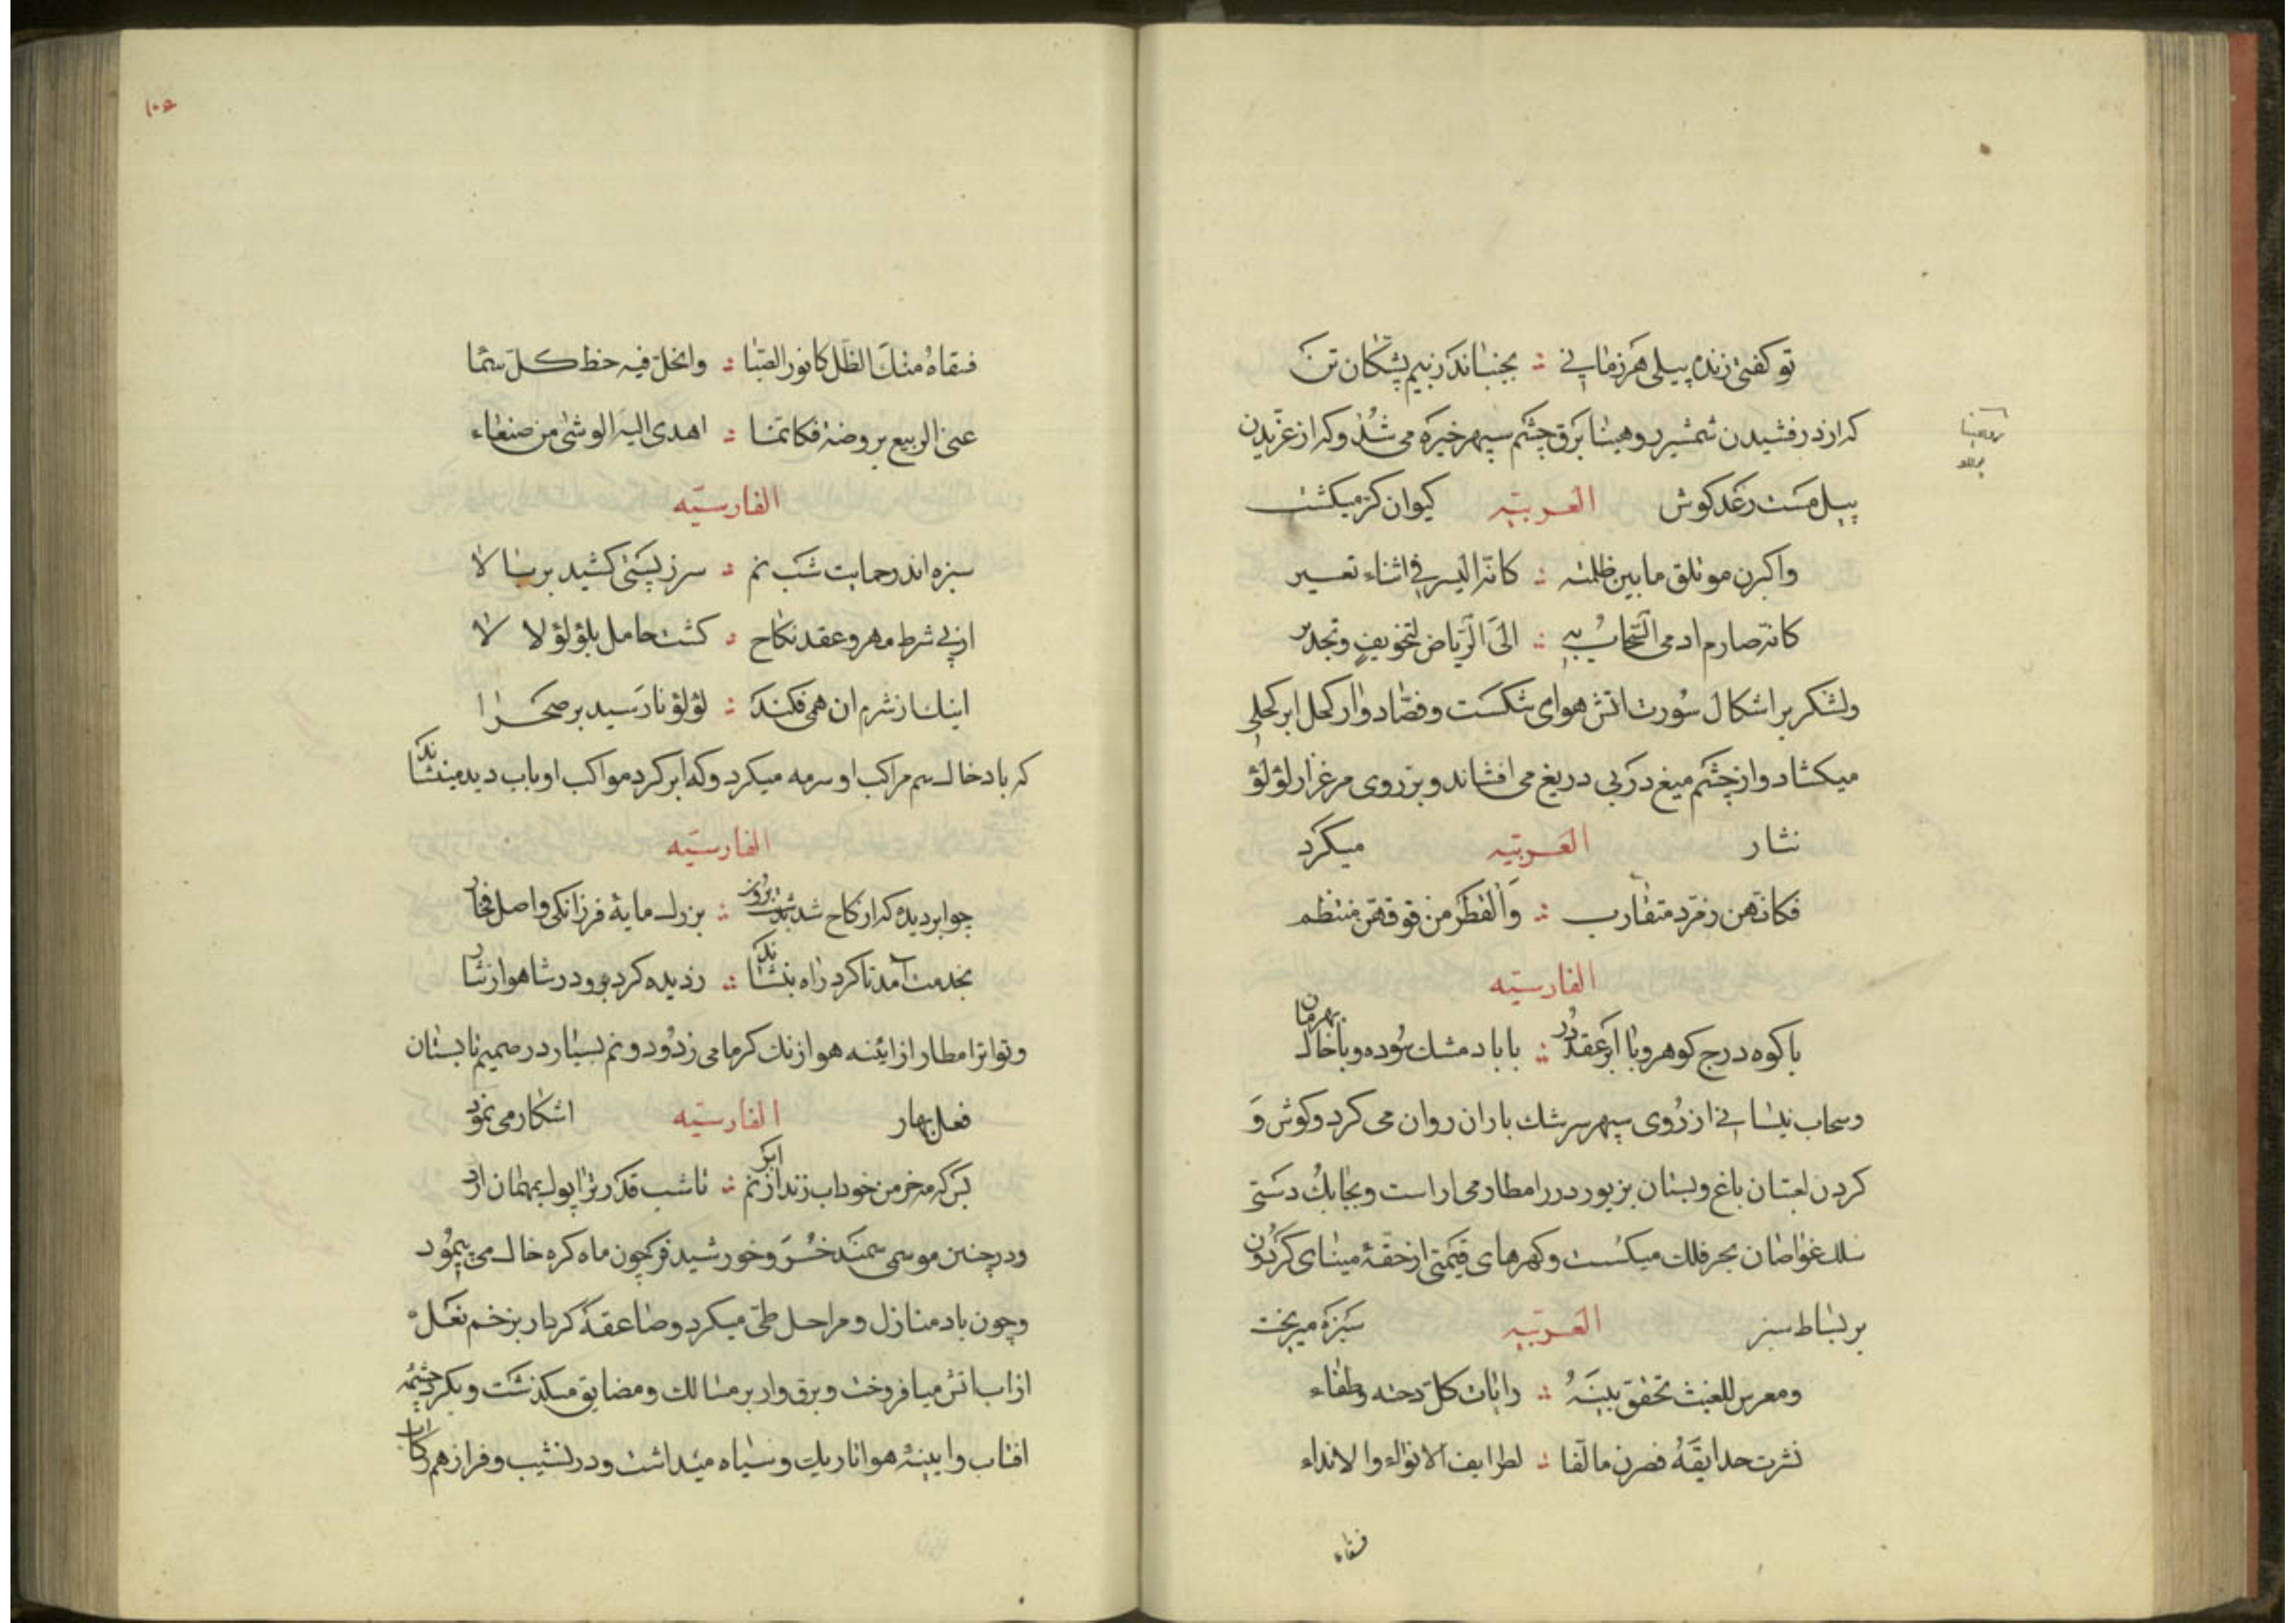 تو کفتی زنده پیلی هر زمانی ؞ بجنباند ز بیم پشکان تن
که از درفشیدن شمشیر و هیبنا برق چشم سپهر خیره می شد و که از غریدن
پیل مست رعد کوش العربیه کیوان کر میکشت
واکبرن موتلق مابین ظلمته ؞ کانه الیسر فی اثناء تعسیر
کانه صارم ادمی السحاب به ؞ الی الریاض لتخویف وتحذیر
ولشکر براشکال سورت اتش هوای شکست و فصاد وار کحل ابر کحلی
میکشاد و از چشم میغ در بی دریغ می افشاند و بر روی مرغزار لؤلؤ
نثار العربیه میکرد
فکانهن رفرد متقارب ؞ والقطر من فوقهن منتظم
الفارسیه
با کوه درج کوهر و با ابر عقد در ؞ با باد مشک سوده و با خاک بهرمان
و سحاب نیسانی از روی سپهر سرشک باران روان می کرد و کوش و
کردن لعبتان باغ و بستان بزیور درر امطار می اراست و بچابک دستی
سلک غواصان بحر فلک میکسست و کهرهای قیمتی از حقهٔ مینای کردون
بر بساط سبز العربیه سبزه میریخت
ومعرس للغیث تخفق بینه ؞ رایات کل دجنه وطفاء
نثرت حدایقه فصرن مالفا ؞ لطرایف الانواء والانداء
فسقاه
۱۰۶
فسقاه منک الطل کافور الصبا ؞ وانحل فیه خظ کل سما
عنی الربیع بروضه فکانما ؞ اهدی الیه الوشی من صنعاء
الفارسیه
سبزه اندر حمایت شب نم ؞ سر ز پستی کشید بر بالا
از پی شرط مهر و عقد نکاح ؞ کشت حامل بلؤلؤ لالا
اینک از شرم ان همی فکند ؞ لؤلؤ نارسید بر صحرا
که باد خاک سم مراکب او سرمه میکرد و که ابر کرد مواکب او باب دیده مینشاند
الفارسیه
چو ابر دیده که از کاخ شد بدشت بروز ؞ بزرک مایهٔ فرزانکی و اصل فخار
بخدمت آمد تا کرد راه بنشاند ؞ ز دیده کرد برو در شاهوار نثار
و تواتر امطار از ائینه هوا زنک کرما می زدود و نم بسیار در صمیم تابستان
فعل بهار الفارسیه اشکار می نمود
بس که مه خرمن خود اب زند از نم ابر ؞ تا شب قدر ترا پولک بمهمان ارد
و در چنین موسمی سمند خسرو خورشید فر چون ماه کره خاک می پیمود
و چون باد منازل و مراحل طی میکرد و صاعقه کردار بزخم نعل
از اب اتش میافروخت و برق وار بر مسالک و مضایق میکذشت و بکرد چشمه
افتاب و ایینهٔ هوا تاریک و سیاه میداشت و در نشیب و فراز هم رکاب